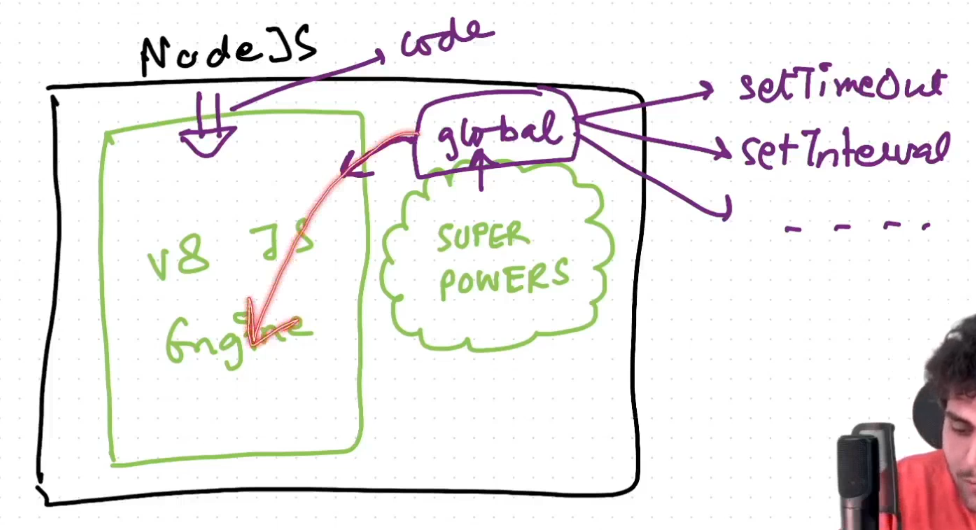 NodeJS
code
global
setTimeOut
setInterval
- - - -
v8 JS
Engine
SUPER
POWERS